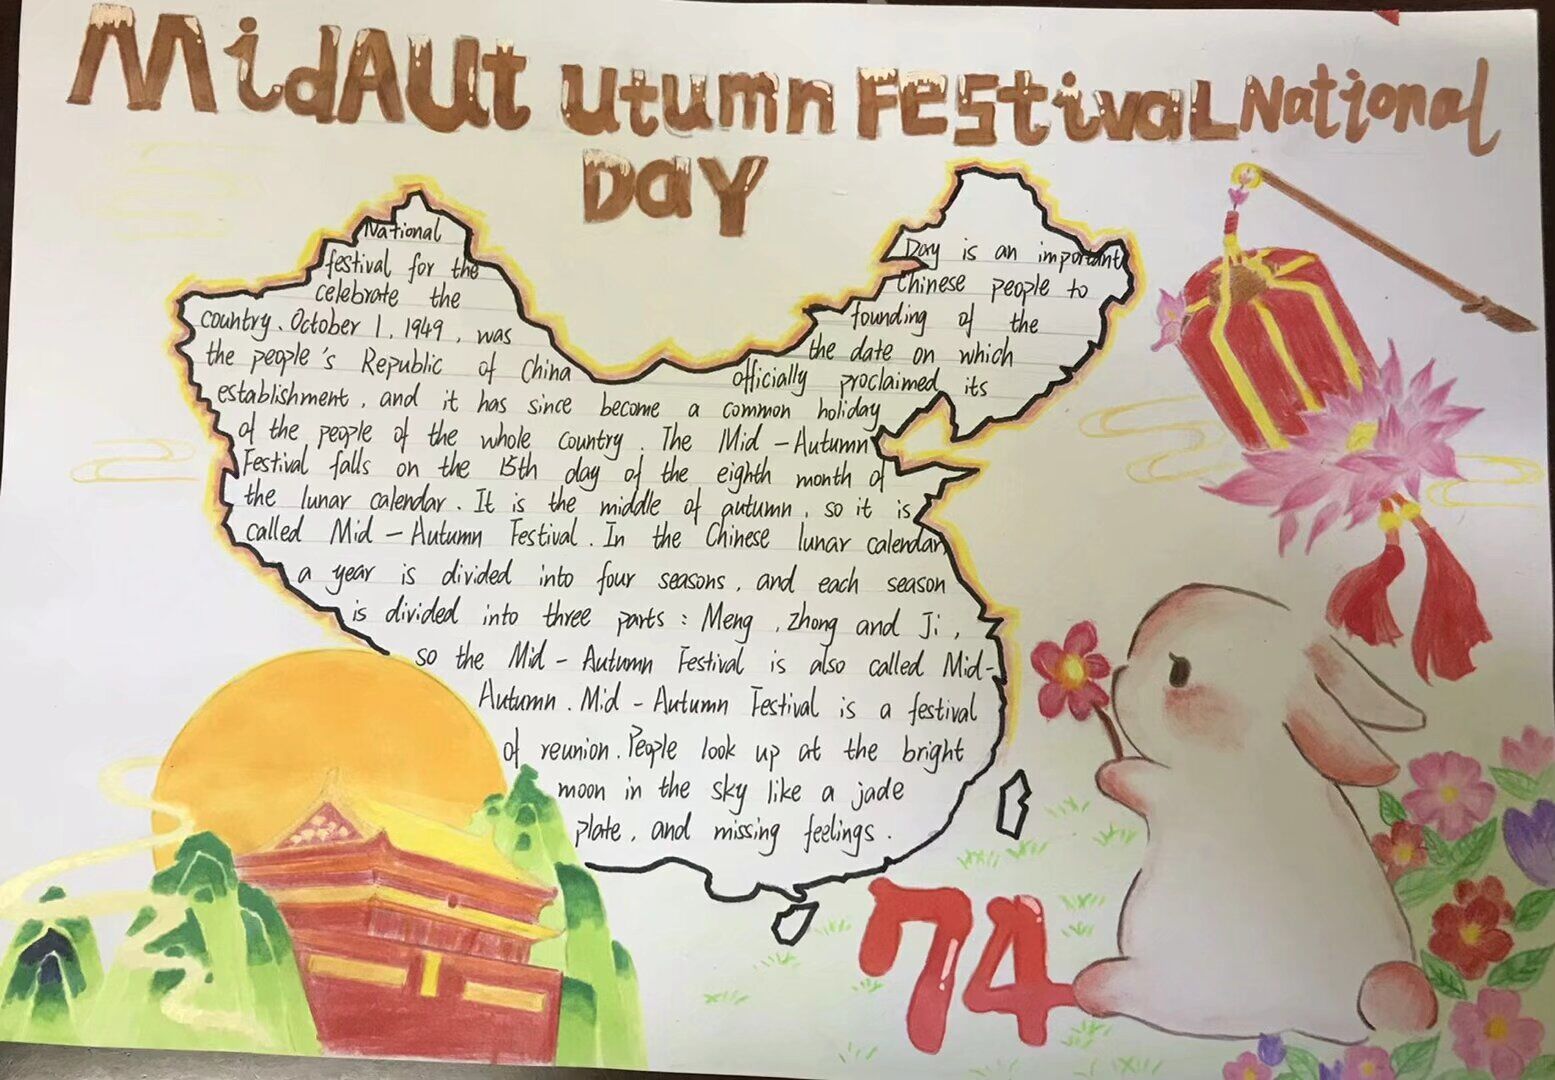 MidAUt utumn FEStivaL National
DaY
National Day is an important
festival for the Chinese people to
celebrate the founding of the
country. October 1, 1949, was the date on which
the people's Republic of China officially proclaimed its
establishment, and it has since become a common holiday
of the people of the whole country. The Mid-Autumn
Festival falls on the 15th day of the eighth month of
the lunar calendar. It is the middle of autumn, so it is
called Mid-Autumn Festival. In the Chinese lunar calendar
a year is divided into four seasons, and each season
is divided into three parts: Meng, Zhong and Ji,
so the Mid-Autumn Festival is also called Mid-
Autumn. Mid-Autumn Festival is a festival
of reunion. People look up at the bright
moon in the sky like a jade
plate, and missing feelings.
74